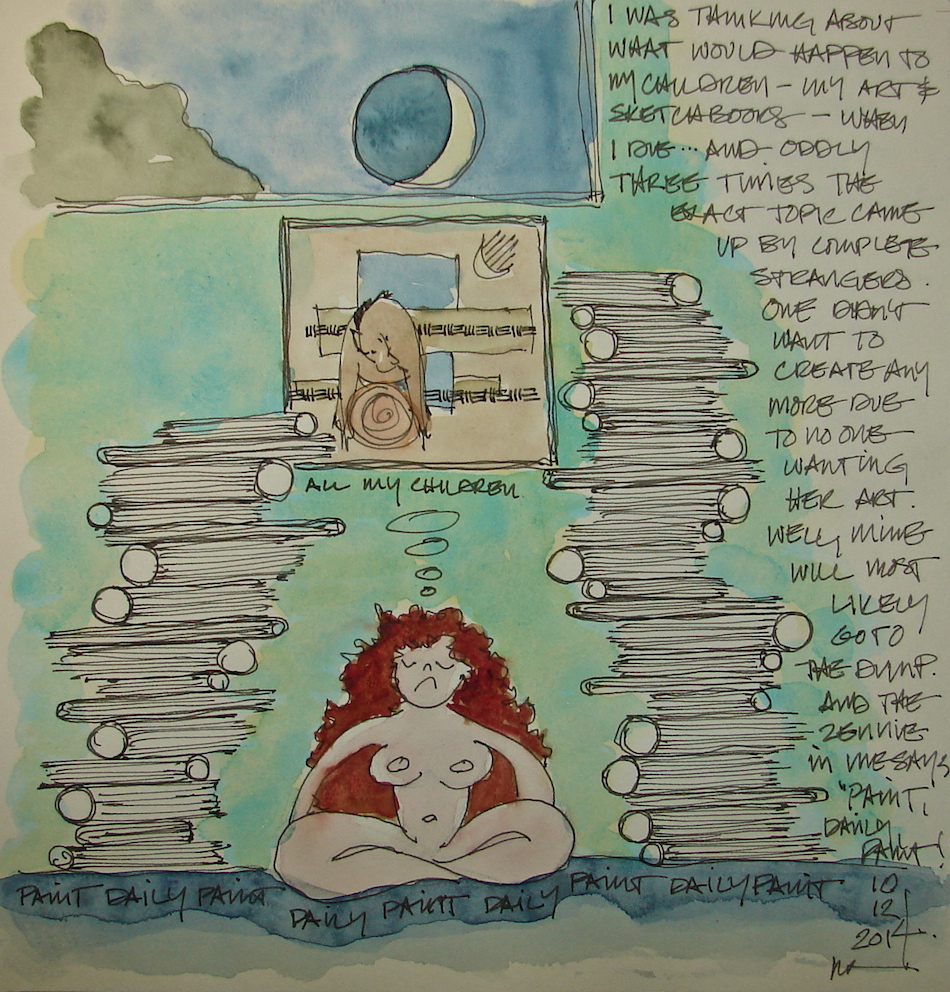 I WAS THINKING ABOUT
WHAT WOULD HAPPEN TO
MY CHILDREN - MY ART &
SKETCHBOOKS - WHEN
I DIE... AND ODDLY
THREE TIMES THE
EXACT TOPIC CAME
UP BY COMPLETE
STRANGERS.
ONE DIDN'T
WANT TO
CREATE ANY
MORE DUE
TO NO ONE
WANTING
HER ART.
WELL MINE
WILL MOST
LIKELY
GO TO
THE DUMP.
AND THE
ZENNIE
IN ME SAYS
"PAINT,
DAILY
PAINT!
ALL MY CHILDREN
PAINT DAILY PAINT
DAILY PAINT DAILY
PAINT DAILY PAINT
10
12
2014.